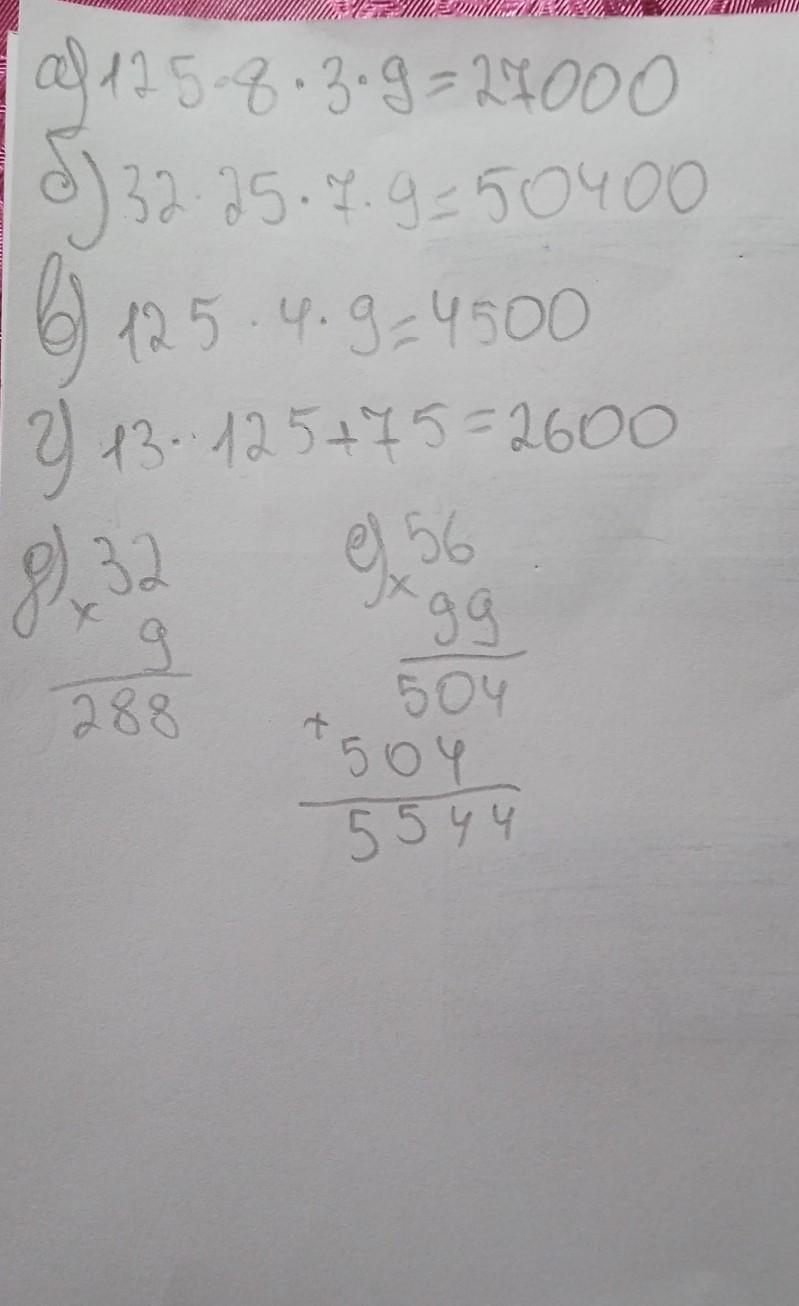 а) 125 · 8 · 3 · 9 = 27000
б) 32 · 25 · 7 · 9 = 50400
в) 125 · 4 · 9 = 4500
г) 13 · · 125 + 75 = 2600
д) 32
×
9
288
е) 56
×
99
504
+
504
5544